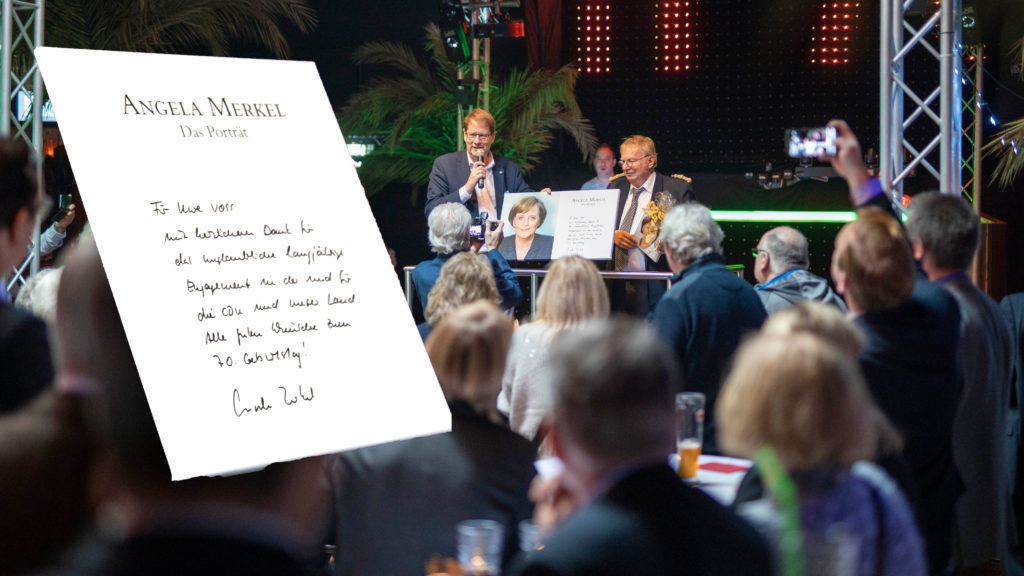 ANGELA MERKEL
Das Porträt
Für Uwe Voss
mit herzlichem Dank für
das unglaubliche langjährige
Engagement in der und für
die CDU und unser Land.
Alle guten Wünsche zum
70. Geburtstag!
ANGELA MERKEL